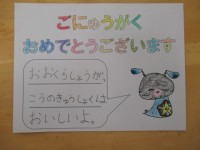 ごにゅうがく
おめでとうございます
おおくらしょうが、
こうのきゅうしょくは
おいしいよ。